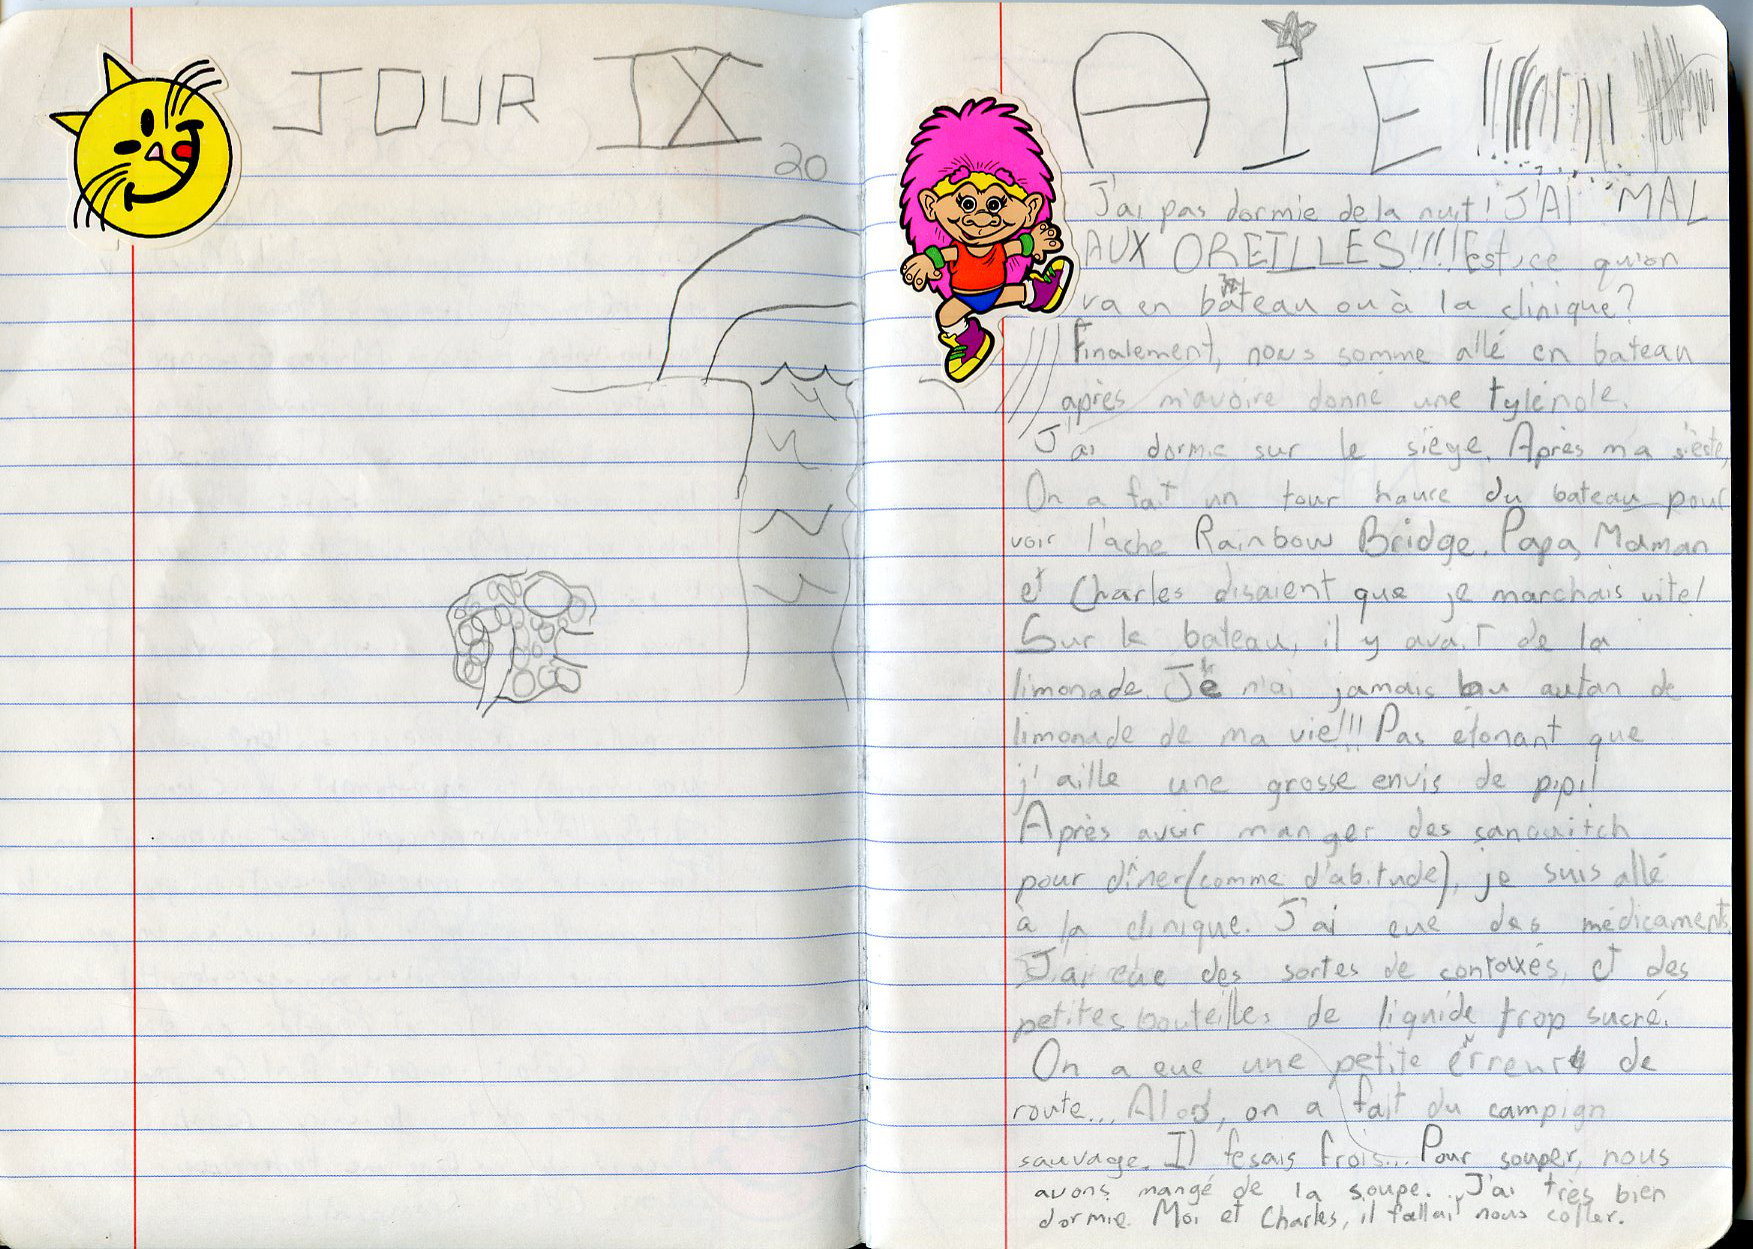 JOUR IX
20
AIE!!!!!!!!!!
J'ai pas dormie de la nuit! J'AI MAL
AUX OREILLES!!!! Est-ce qu'on
va en bateau ou à la clinique?
Finalement, nous somme allé en bateau
après m'avoire donné une tylénole.
J'ai dormie sur le siège. Après ma sièste,
On a fait un tour haure du bateau pour
voir l'ache Rainbow Bridge. Papa, Maman
et Charles disaient que je marchais vite!
Sur le bateau, il y avait de la
limonade. Je n'ai jamais bu autan de
limonade de ma vie!!! Pas étonant que
j'aille une grosse envis de pipi!
Après avoir manger des sanouitch
pour dîner (comme d'abitude), je suis allé
à la clinique. J'ai eue des médicaments.
J'ai eue des sortes de contaxés, et des
petites bouteilles de liquide trop sucré.
On a eue une petite erreur de
route... Alors, on a fait du campign
sauvage. Il fesais frois... Pour souper, nous
avons mangé de la soupe. J'ai très bien
dormie. Moi et Charles, il fallait nous coller.